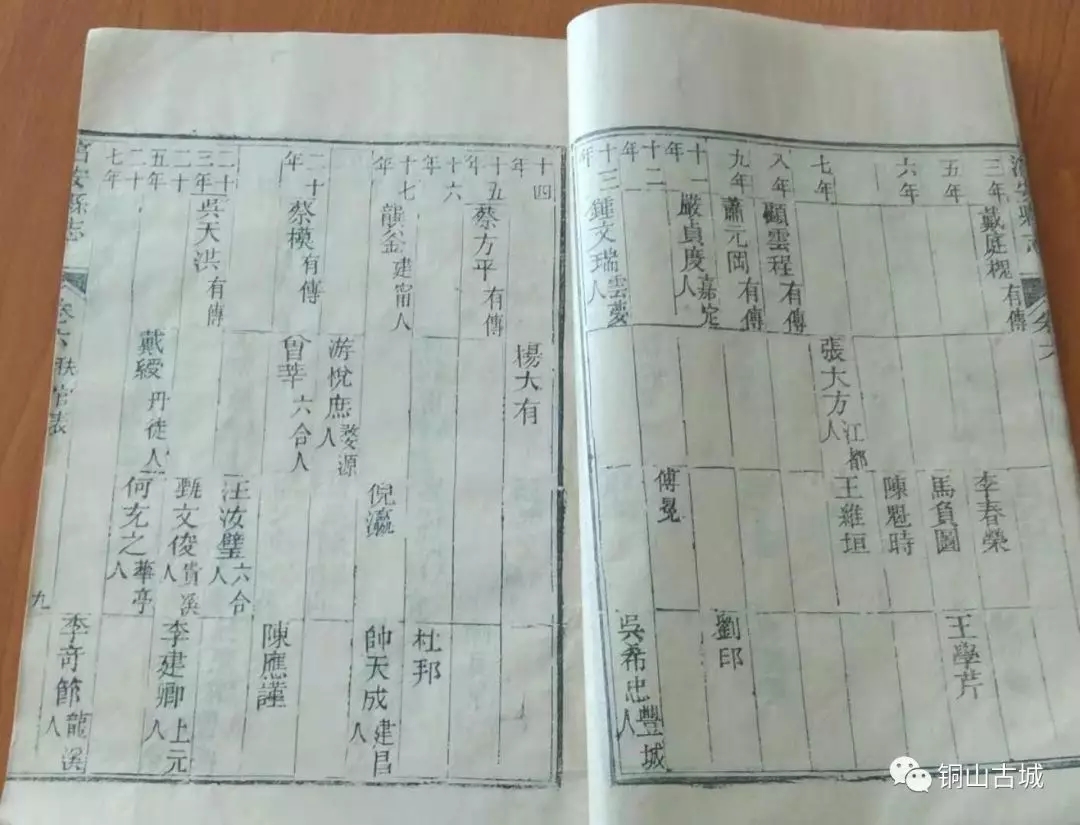 三年 戴庭槐有傳 李春榮
五年 馬負圖 王學芹
六年 陳魁時
七年 張大方江都人 王維垣
八年 顧雲程有傳
九年 蕭元岡有傳 劉邸
十一年 嚴貞度嘉定人
十二年 傅冕
十三年 鍾文瑞雲夢人 吳希忠豐城人
十四年 楊大有
十五年 蔡方平有傳
十六年 杜邦
十七年 龔釜建甯人 倪瀛 帥天成建昌人
游悅庶婺源人
二十年 蔡模有傳 曾莘六合人 陳應謹
二十三年 吳天洪有傳 汪汝璧六合人
二十五年 戴綬丹徒人 甄文俊貴溪人 李建卿上元人
二十七年 何允之華亭人 李奇節龍溪人
詔安縣志 卷六 職官表 九
铜山古城